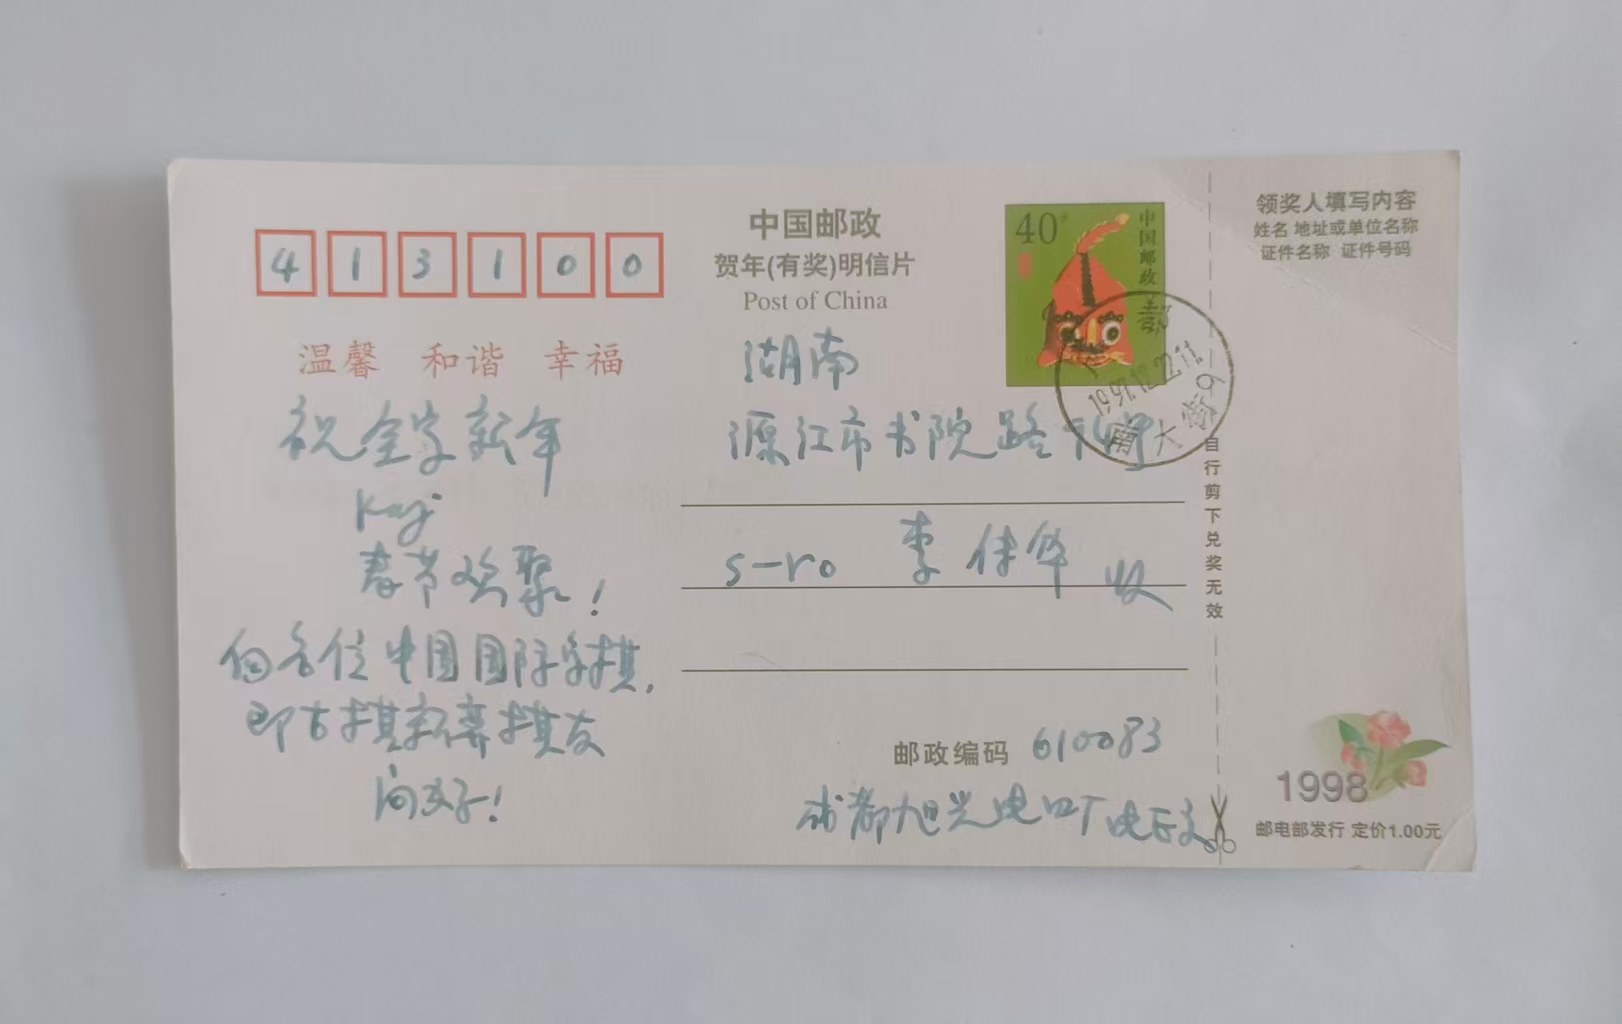 413100
中国邮政
贺年(有奖)明信片
Post of China
40分
中国邮政
温馨 和谐 幸福
祝全家新年
春节欢聚!
向各位中国国际象棋,
即古棋新弈棋友
问好!
湖南
沅江市书院路
s-ro 李 华 收
1997.12.22.11
南大街9
邮政编码 610083
成都旭光电 厂
领奖人填写内容
姓名 地址或单位名称
证件名称 证件号码
自行剪下兑奖无效
1998
邮电部发行 定价1.00元